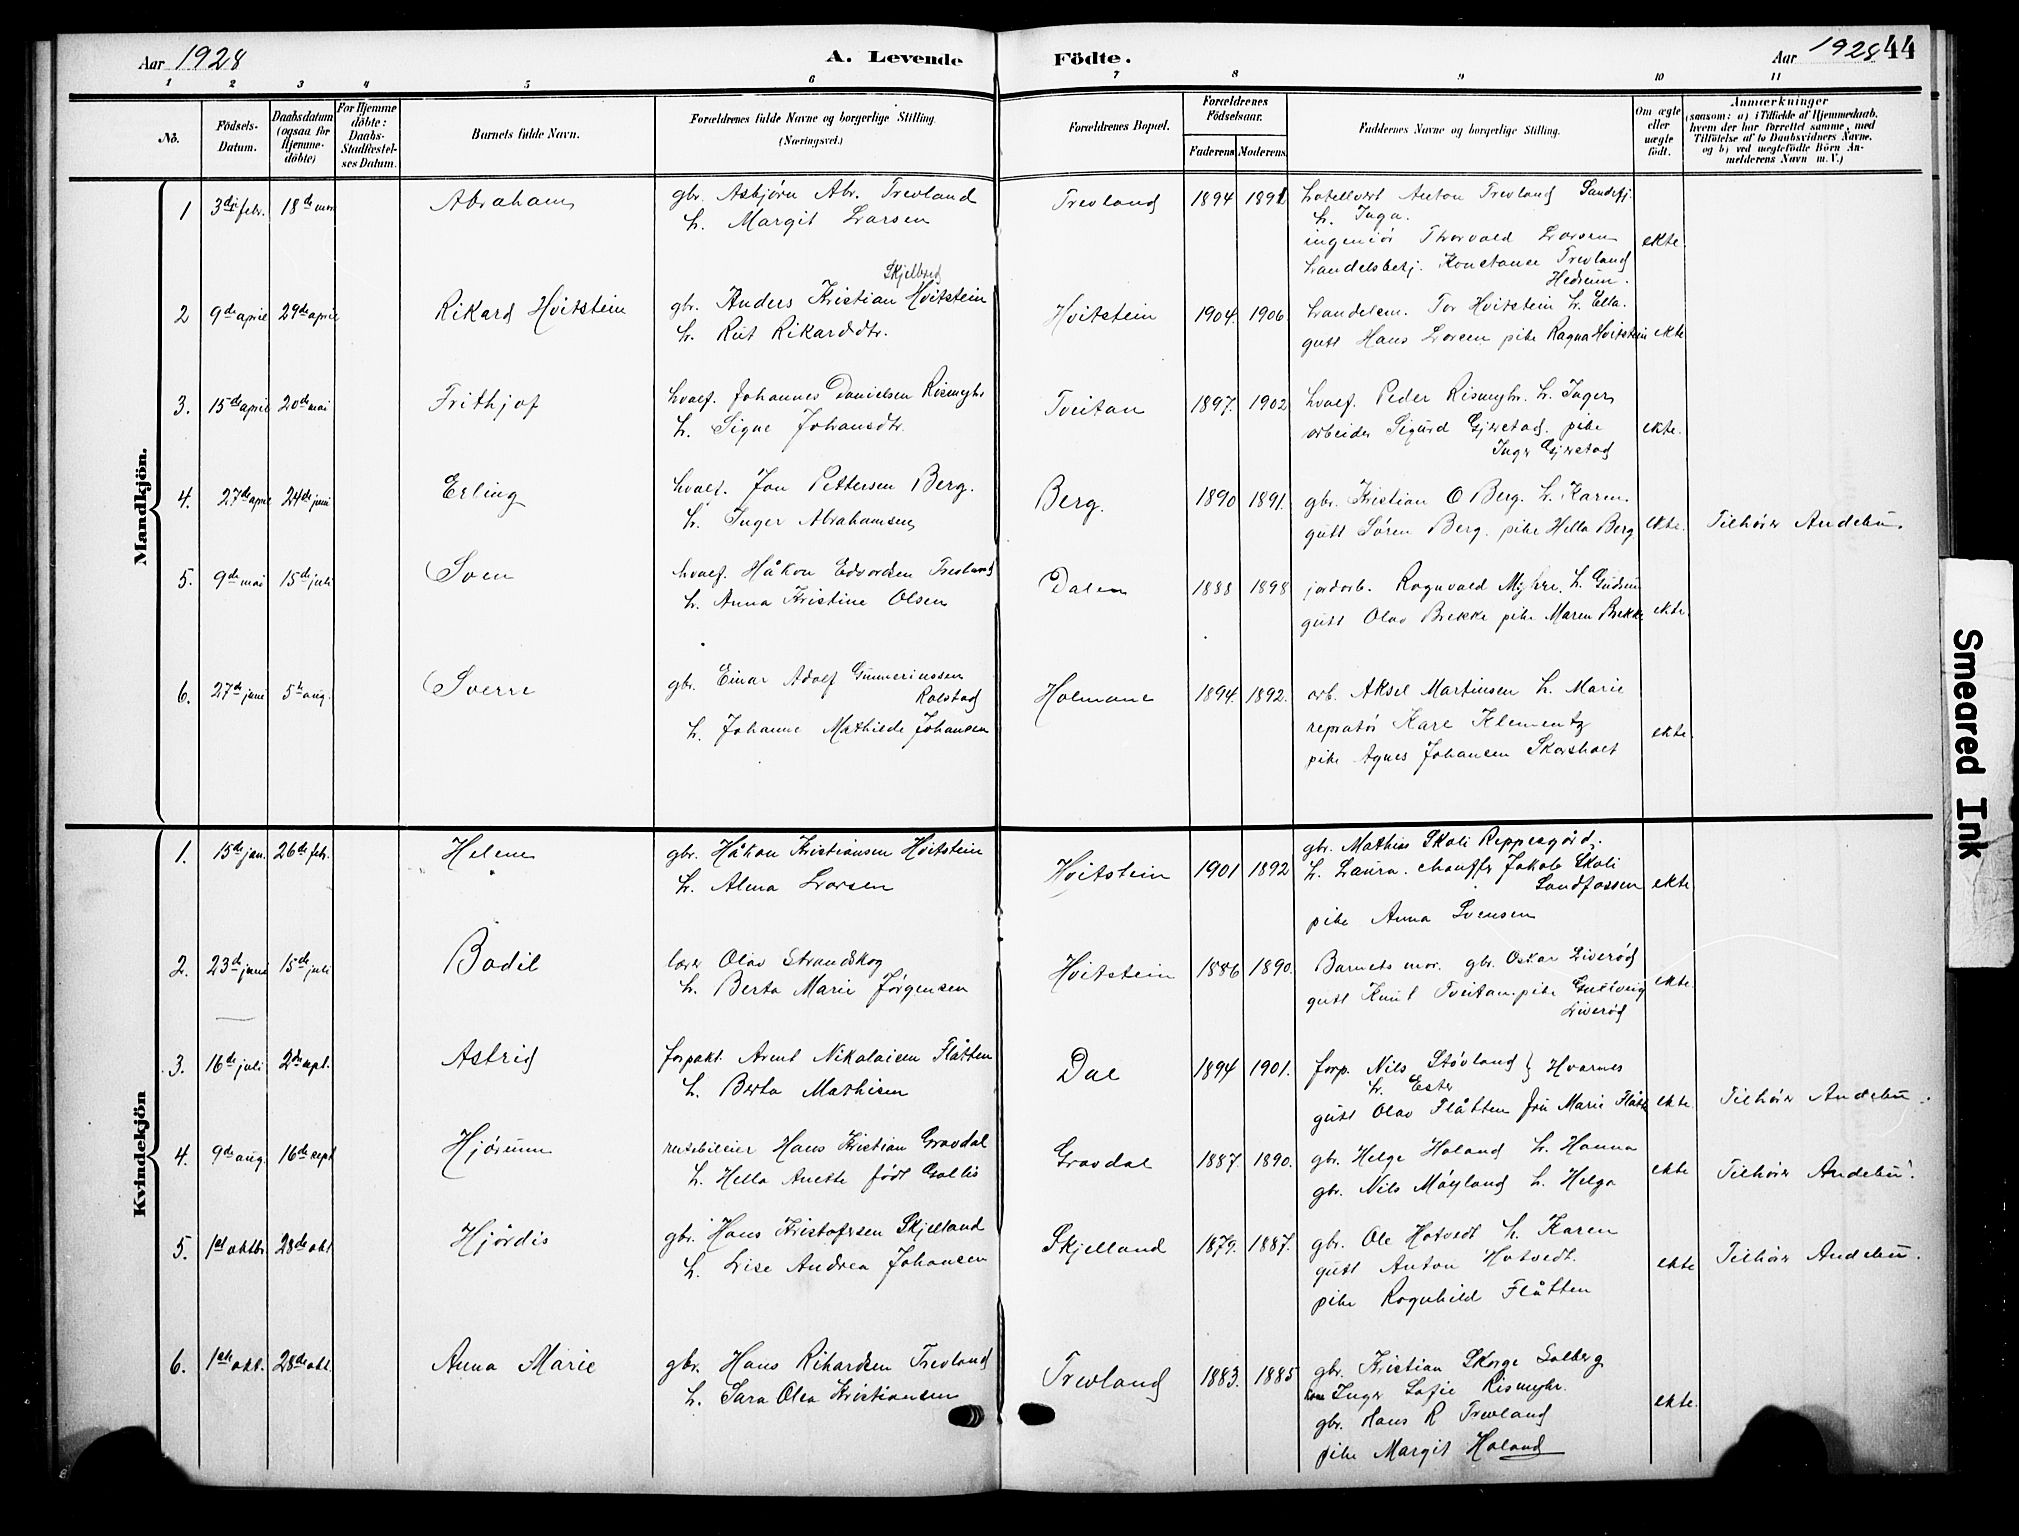 Aar 1928
A. Levende Födte.
Aar 1928 44
1 2 3 4 5 6 7 8 9 10 11
No.
Födsels-Datum.
Daabsdatum (ogsaa for Hjemme-döbte)
For Hjemme döbte: Daabs-Stadfæstel-ses Datum.
Barnets fulde Navn.
Forældrenes fulde Navne og borgerlige Stilling (Næringsvei.)
Forældrenes Bopæl.
Forældrenes Födselsaar.
Faderens Moderens
Faddernes Navne og borgerlige Stilling.
Om ægte eller uægte födt.
Anmærkninger
(saasom: a) i Tilfælde af Hjemmedaab, hvem der har forrettet samme, med Tilföielse af to Daabsvidners Navne, og b) ved uægtefödte Börn An-melderens Navn m. V.)
Mandkjön.
1 3di febr. 18de mar Abraham
gbr. Asbjørn Abr. Trevland
h. Margit Larsen
Trevland 1894 1891
hotellvert Anton Trevland Sandefj.
h. Inga.
ingeniør Thorvald Larsen
handelsbetj. Konstanse Trevland
Hedrum.
ekte.
2 9de april 29de april Rikard Hvitstein
Skjelbred
gbr. Anders Kristian Hvitstein
h. Rut Rikardsdtr.
Hvitstein 1904. 1906
handelsm. Tor Hvitstein h. Ella.
gutt Hans Larsen pike Ragna Hvitstein ekte
3. 15de april 20de mai Frithjof
hvalf. Johannes Danielsen Rismyhr
h. Signe Johansdtr.
Tveitan 1897. 1902
hvalf. Peder Rismyhr. h. Inger
arbeider Sigurd Gjerstad. pike
Inger Gjerstad
ekte.
4. 27de april 24de juni Erling
hvalf. Jon Pettersen Berg.
h. Inger Abrahamsen
Berg. 1890 1891.
gbr. Kristian O Berg. h. Karen.
gutt Søren Berg. pike Hella Berg ekte. Tilhører Andebu.
5. 9de mai 15de juli Sven
hvalf. Håkon Edvardsen Trevland
h. Anna Kristine Olsen
Dalen 1888 1898
jordarb. Ragnvald Myhre. h. Gudrun
gutt Olav Brekke pike Maren Brekke ekte.
6. 27de juni 5te aug. Sverre
gbr. Einar Adolf Gunneriussen
Rolstad
h. Johanne Mathilde Johansen
Holmane 1894. 1892.
arb. Aksel Martinsen h. Marie
repratør Karl Klementz
pike Agnes Johansen Skorsholt
ekte.
Kvindekjön
1. 15de jan. 26de febr. Helene
gbr. Håkon Kristiansen Hvitstein
h. Alma Larsen
Hvitstein 1901 1892
gbr. Mathias Skoli Reppesgård.
h. Laura. chauffør Jakob Skoli
Sandfossen
pike Anna Svensen
ekte
2. 23de juni 15de juli Bodil
lærer Olav Strandskog
h. Berta Marie Jørgensen
Hvitstein 1886 1890.
Barnets mor. gbr. Oskar Liverød
gutt Knut Tveitan. pike Gudveig
Liverød
ekte.
3. 16de juli 2den sept. Astrid
forpakt. Arent Nikolaisen Flåtten
h. Berta Mathisen
Dal 1894 1901.
forp. Nils Støvland } Hvarnes
h. Ester
gutt Olav Flåtten fru Marie Flåtten ekte. Tilhører Andebu.
4. 9de aug. 16de sept Hjørunn
rutebileier Hans Kristian Gravdal
h. Hella Anette født Gallis
Gravdal 1887. 1890.
gbr. Helge Haland h. Hanna
gbr. Nils Møyland h. Helga
ekte Tilhører Andebu.
5. 1ste oktbr. 28de okt. Hjørdis
gbr. Hans Kristofersen Skjelland
h. Lise Andrea Johansen
Skjelland 1879. 1887.
gbr. Ole Hotvedt h. Karen
gutt Anton Hotvedt.
pike Ragnhild Flåtten
ekte Tilhører Andebu.
6. 1ste okt. 28de okt. Anna Marie
gbr. Hans Rikardsen Trevland
h. Sara Olea Kristiansen
Trevland 1883. 1885
gbr. Kristian Skorge Solberg
kone Inger Sofie Rismyhr.
gbr. Hans R Trevland
pike Margit Haland
ekte.
Smeared Ink